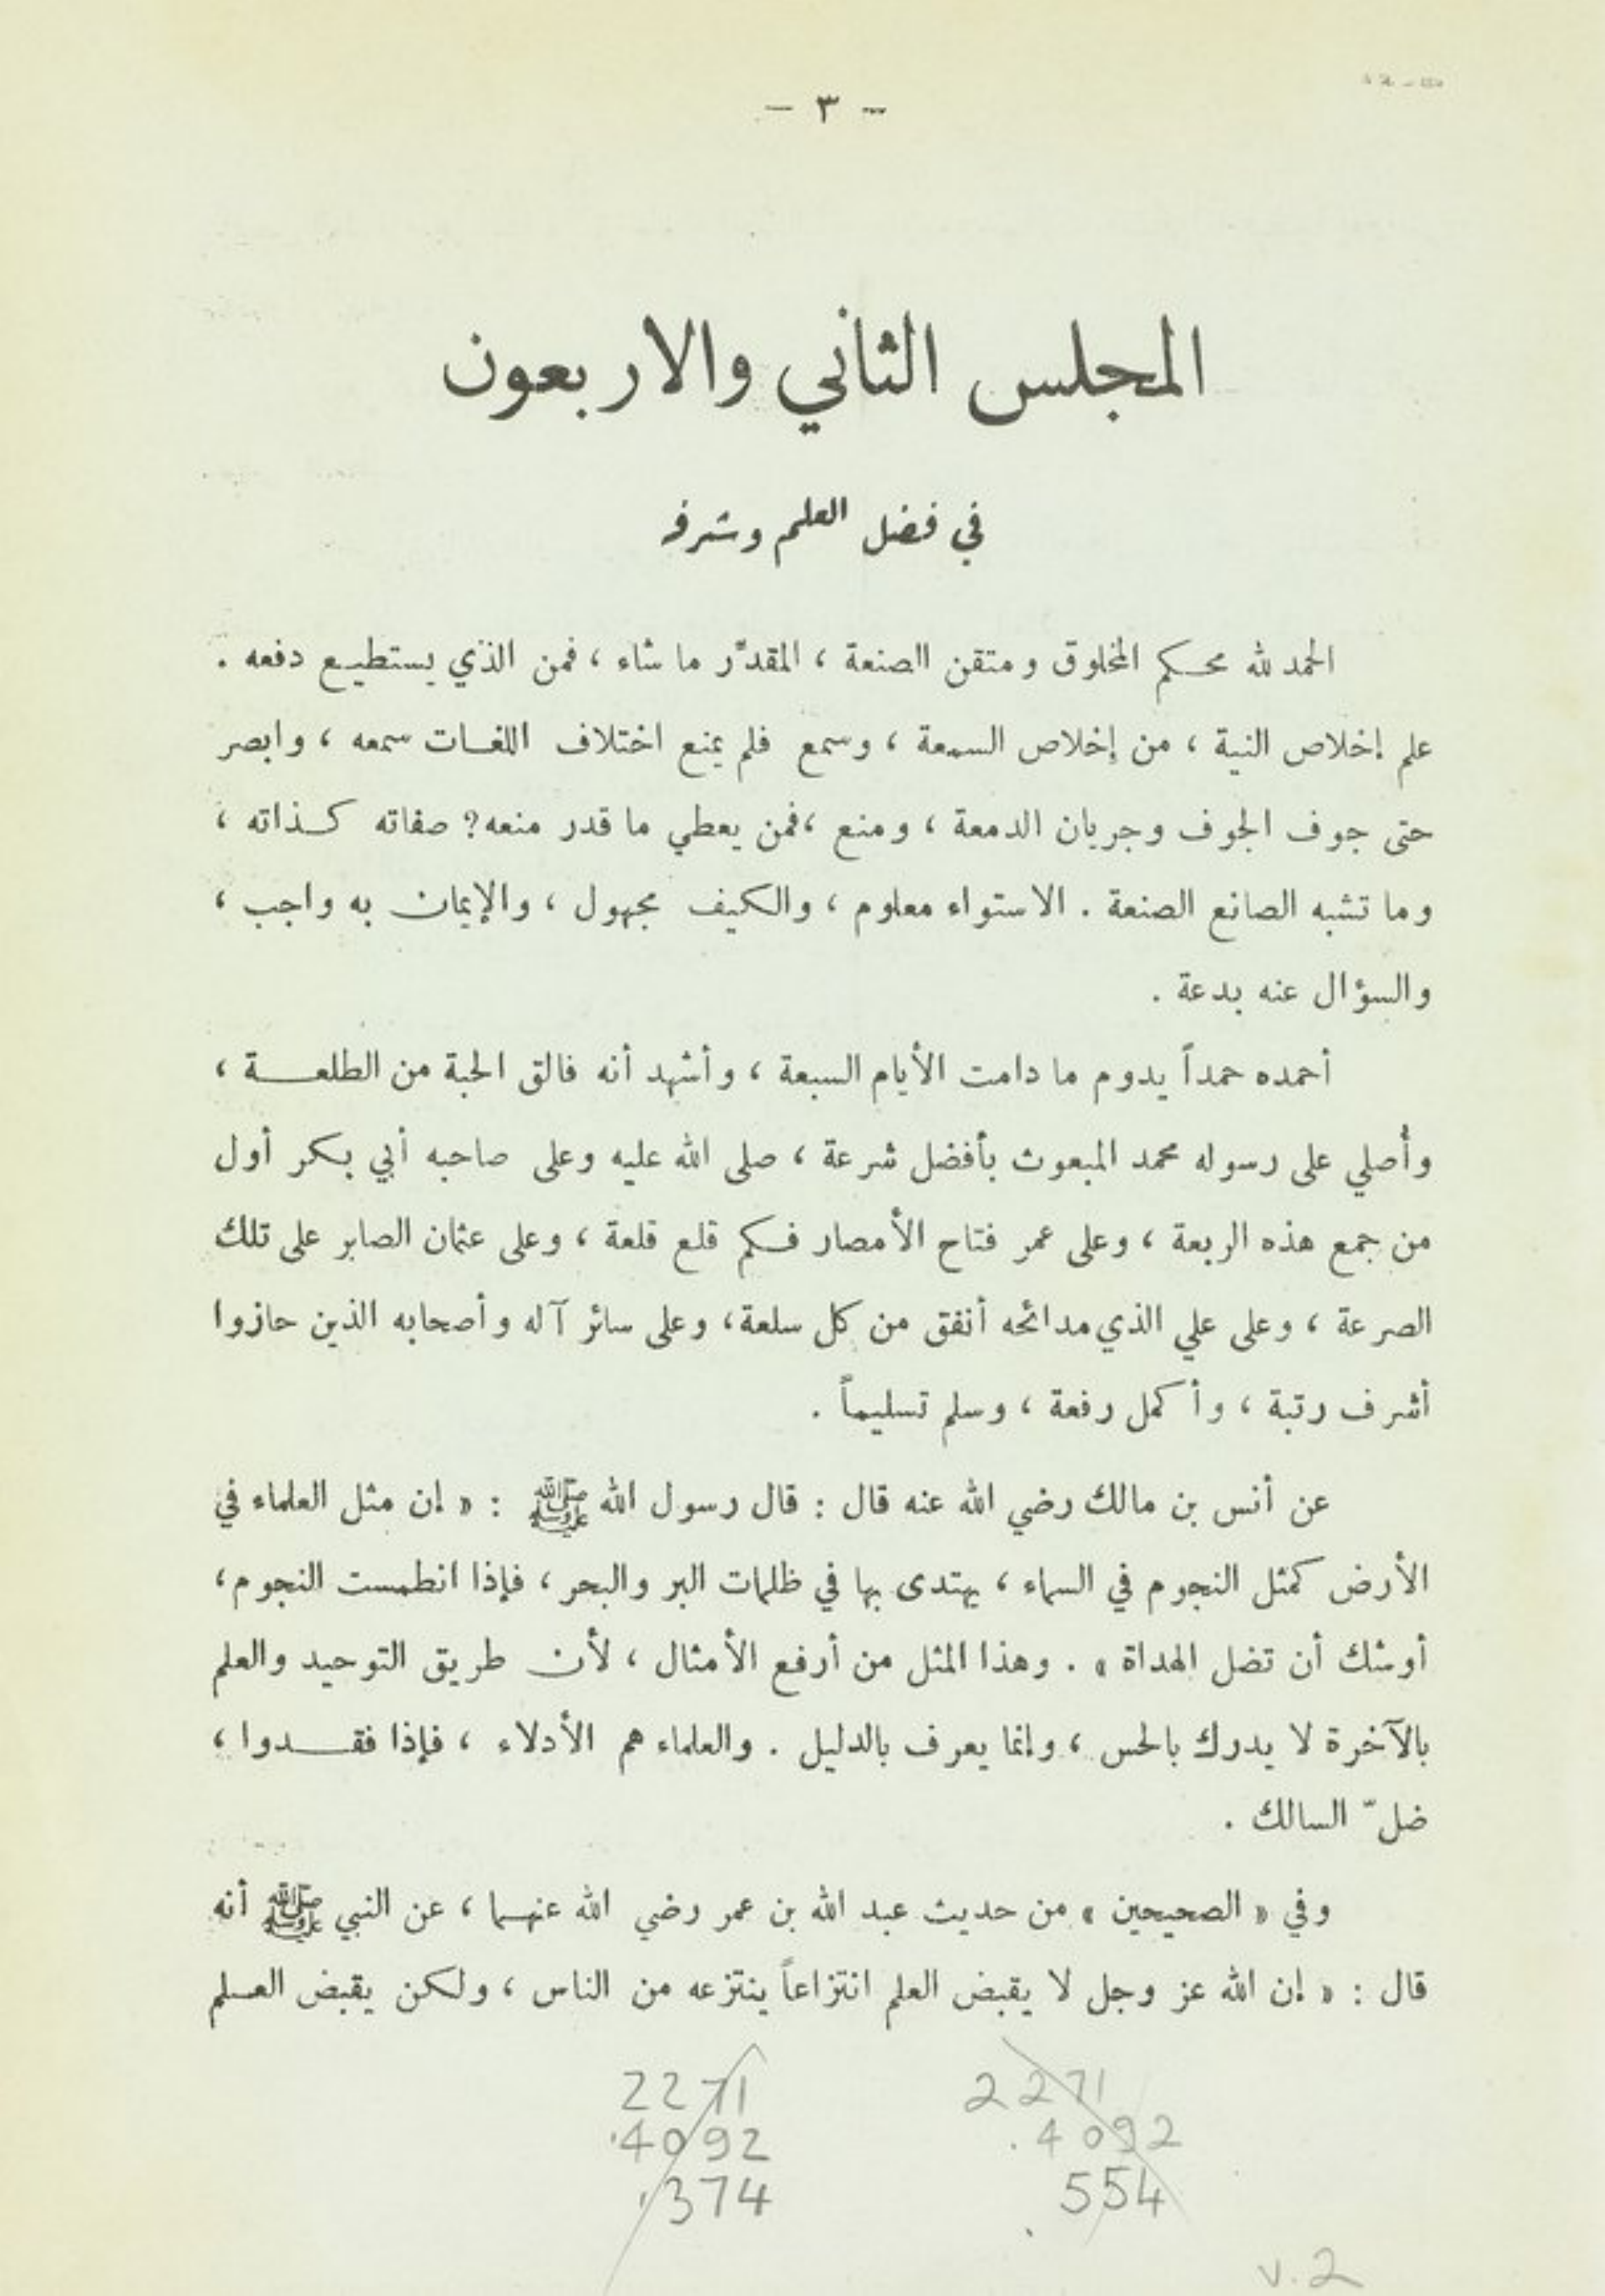 - ٣ -
المجلس الثاني والاربعون
في فضل العلم وشرفه
الحمد لله محكم المخلوق ومتقن الصنعة ، المقدّر ما شاء ، فمن الذي يستطيع دفعه .
علم إخلاص النية ، من إخلاص السمعة ، وسمع فلم يمنع اختلاف اللغات سمعه ، وابصر
حتى جوف الجوف وجريان الدمعة ، ومنع ، فمن يعطي ما قدر منعه؟ صفاته كذاته ،
وما تشبه الصانع الصنعة . الاستواء معلوم ، والكيف مجهول ، والإيمان به واجب ،
والسؤال عنه بدعة .
أحمده حمداً يدوم ما دامت الأيام السبعة ، وأشهد أنه فالق الحبة من الطلعة ،
وأُصلي على رسوله محمد المبعوث بأفضل شرعة ، صلى الله عليه وعلى صاحبه أبي بكر أول
من جمع هذه الربعة ، وعلى عمر فتاح الأمصار فكم قلع قلعة ، وعلى عثمان الصابر على تلك
الصرعة ، وعلى علي الذي مدائحه أنفق من كل سلعة، وعلى سائر آله وأصحابه الذين حازوا
أشرف رتبة ، وأكمل رفعة ، وسلم تسليماً .
عن أنس بن مالك رضي الله عنه قال : قال رسول الله ﷺ : « إن مثل العلماء في
الأرض كمثل النجوم في السماء ، يهتدى بها في ظلمات البر والبحر ، فإذا انطمست النجوم،
أوشك أن تضل الهداة » . وهذا المثل من أرفع الأمثال ، لأن طريق التوحيد والعلم
بالآخرة لا يدرك بالحس ، وإنما يعرف بالدليل . والعلماء هم الأدلاء ، فإذا فقدوا ،
ضلّ السالك .
وفي « الصحيحين » من حديث عبد الله بن عمر رضي الله عنهما ، عن النبي ﷺ أنه
قال : « إن الله عز وجل لا يقبض العلم انتزاعاً ينتزعه من الناس ، ولكن يقبض العلم
2271 2271
.4092 .4092
.374 554
v.2